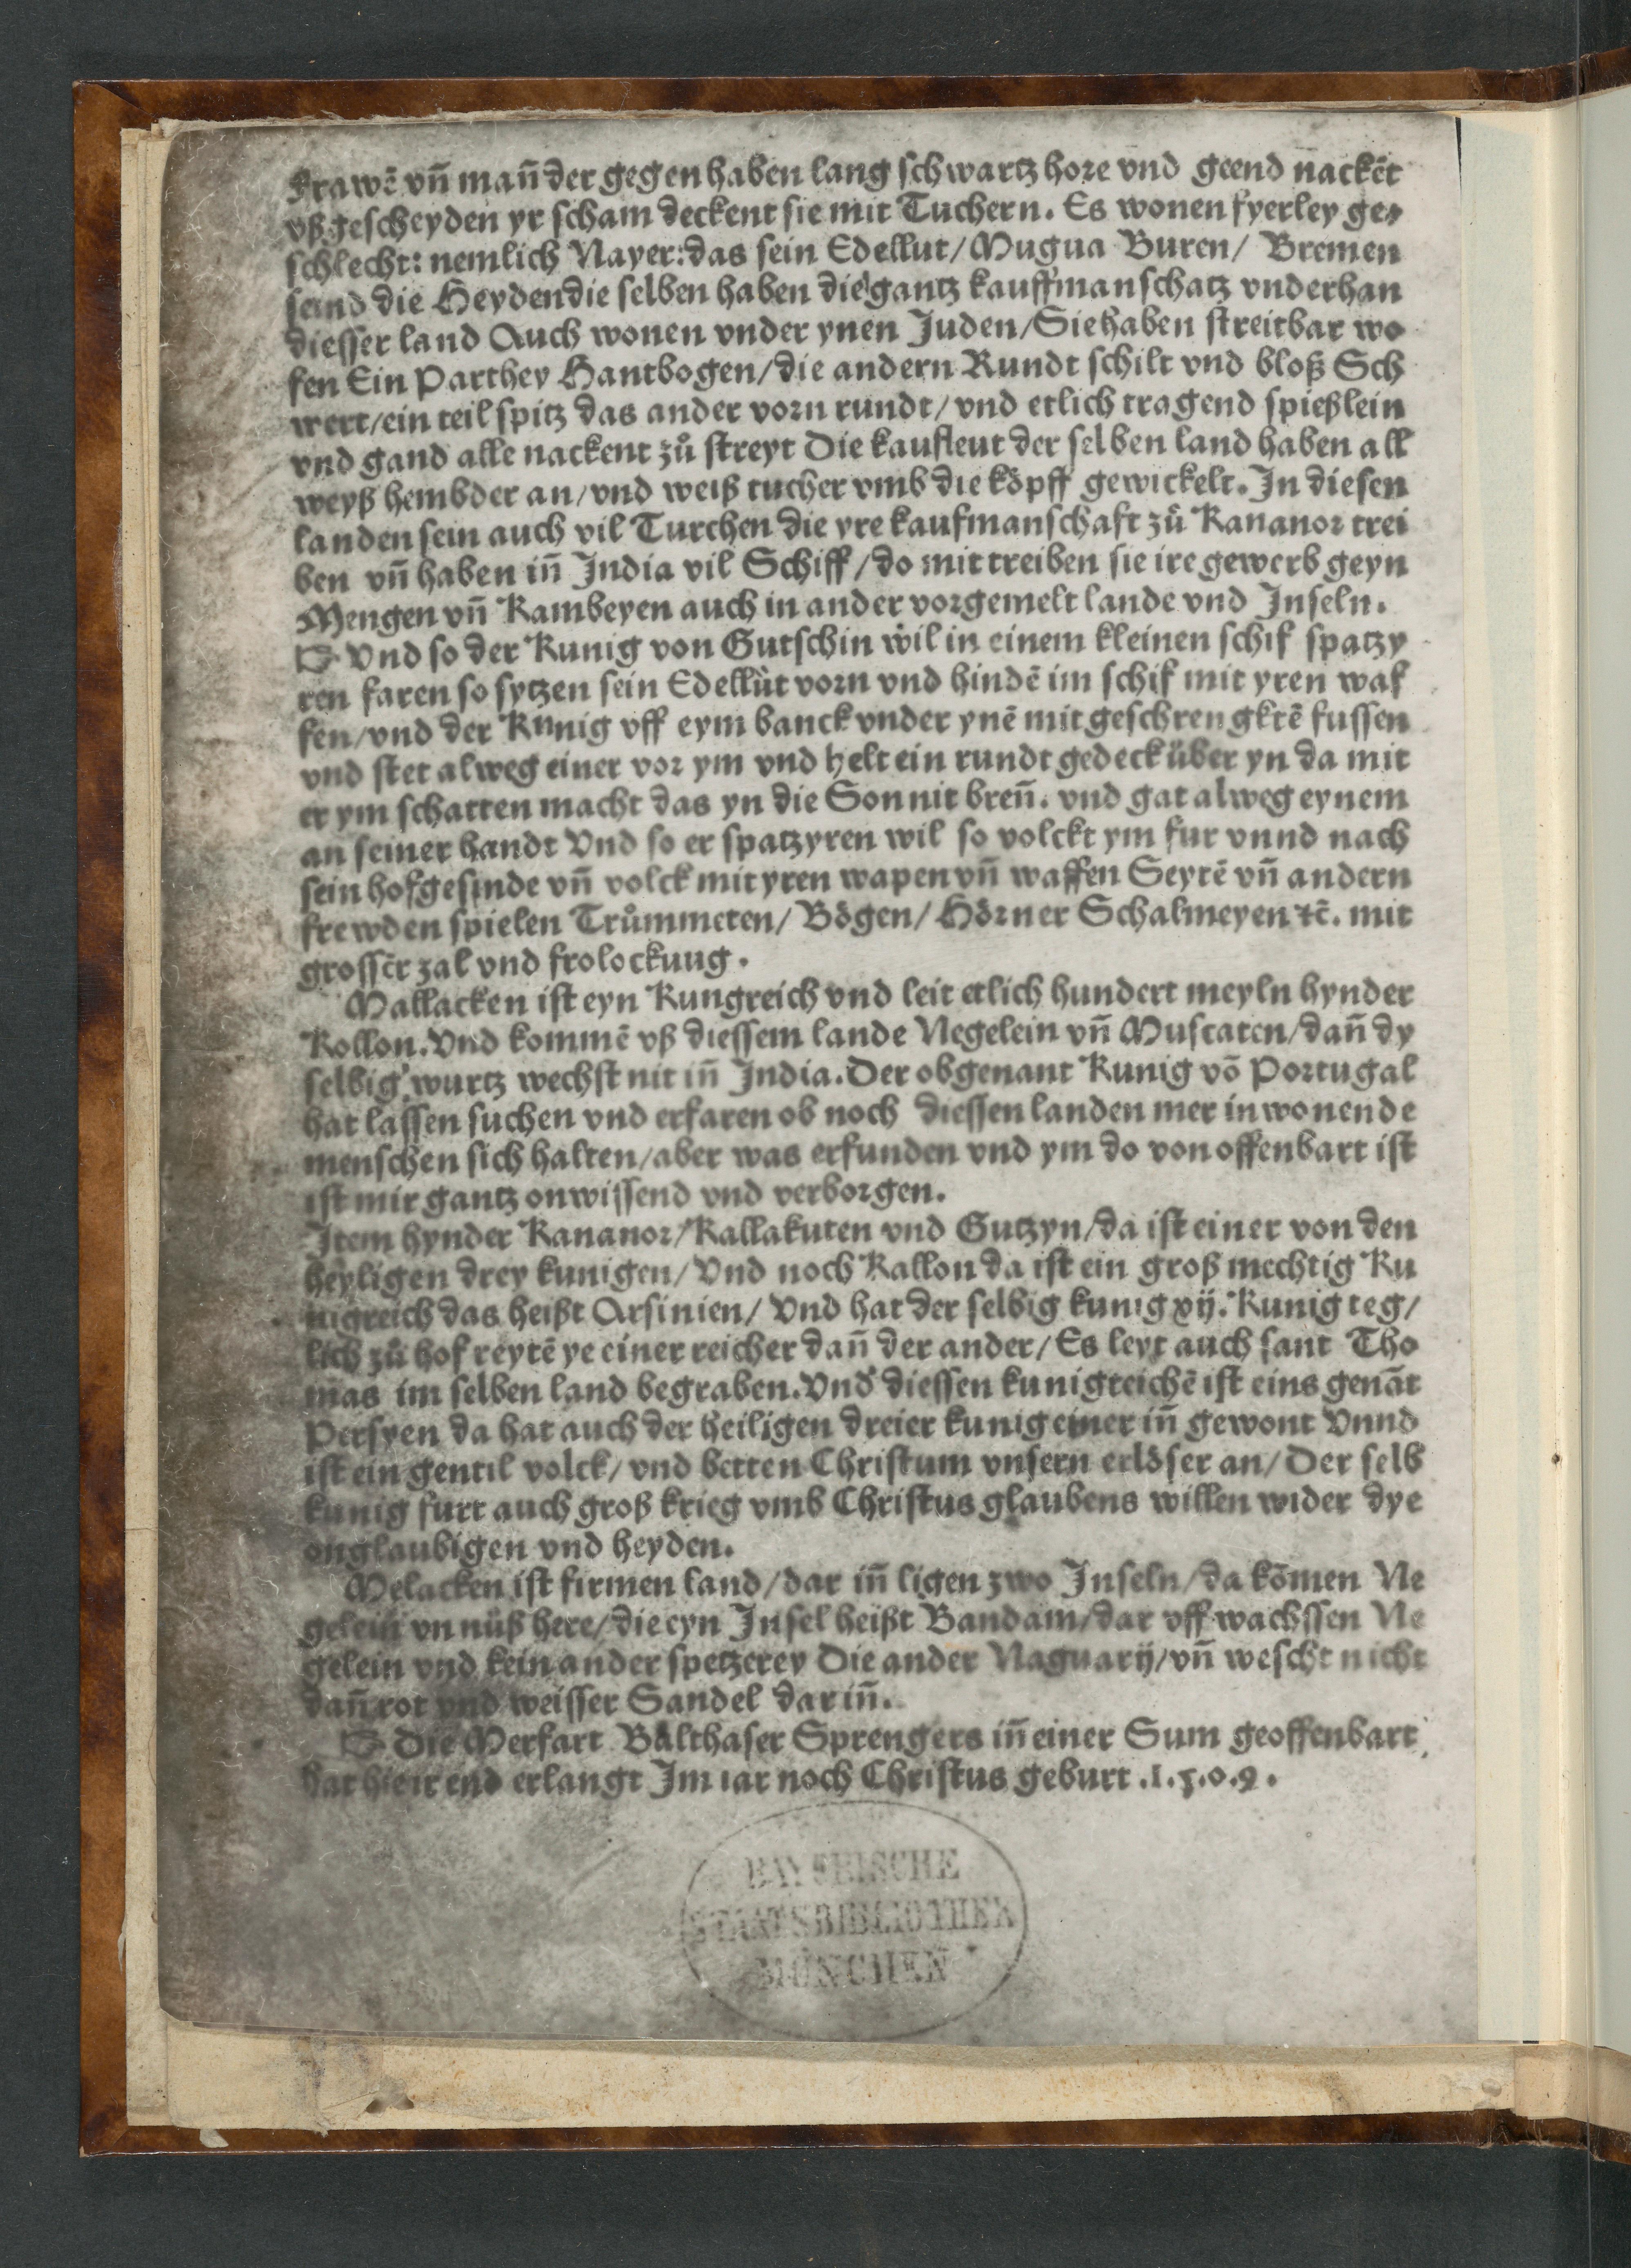 Frawē vn̄ man̄ der gegen haben lang schwartz hore vnd geend nackēt
vß gescheyden yr scham deckent sie mit Tuchern. Es wonen fyerley ge⸗
schlecht: nemlich Nayer: das sein Edellut/ Mugua Buren/ Bremen
seind die Heyden die selben haben die gantz kauffmanschatz vnderhan
diesser land Auch wonen vnder ynen Juden/ Sie haben streitbar wo
fen Ein Parthey Hantbogen/ die andern Rundt schilt vnd bloß Sch
wert/ ein teil spitz das ander vorn rundt/ vnd etlich tragend spießlein
vnd gand alle nackent zů streyt Die kaufleut der selben land haben all
weyß hembder an/ vnd weiß tucher vmb die köpff gewickelt. In diesen
landen sein auch vil Turchen die yre kaufmanschaft zů Kananor trei
ben vn̄ haben in̄ India vil Schiff/ do mit treiben sie ire gewerb geyn
Mengen vn̄ Kambeyen auch in ander vorgemelt lande vnd Inseln.
☞ Vnd so der Kunig von Gutschin wil in einem kleinen schif spatzy
ren faren so sytzen sein Edellüt vorn vnd hindē im schif mit yren waf
fen/ vnd der Kunig vff eym banck vnder ynē mit geschrengktē fussen
vnd stet alweg einer vor ym vnd helt ein rundt gedeck über yn da mit
er ym schatten macht das yn die Son nit bren̄. vnd gat alweg eynem
an seiner handt Vnd so er spatzyren wil so volckt ym fur vnnd nach
sein hofgesinde vn̄ volck mit yren wapen vn̄ waffen Seytē vn̄ andern
frewden spielen Trůmmeten/ Bögen/ Hörner Schalmeyen ⁊c̄. mit
grosser zal vnd frolockuug.
Mallacken ist eyn Kungreich vnd leit etlich hundert meyln hynder
Kollon. Vnd kommē vß diessem lande Negelein vn̄ Muscaten/ dan̄ dy
selbig wurtz wechst nit in̄ India. Der obgenant Kunig vō Portugal
hat lassen suchen vnd erfaren ob noch diessen landen mer inwonende
menschen sich halten/ aber was erfunden vnd ym do von offenbart ist
ist mir gantz onwissend vnd verborgen.
Item hynder Kananor/ Kallakuten vnd Gutzyn/ da ist einer von den
heyligen drey kunigen/ Vnd noch Kallon da ist ein groß mechtig Ku
nigreich das heißt Arsinien/ Vnd hat der selbig kunig xij. Kunig teg/
lich zů hof reytē ye einer reicher dan̄ der ander/ Es leyt auch sant Tho
mas im selben land begraben. Vnd diessen kunigreichē ist eins genāt
Persyen da hat auch der heiligen dreier kunig einer in̄ gewont Vnnd
ist ein gentil volck/ vnd betten Christum vnsern erlöser an/ Der selb
kunig furt auch groß krieg vmb Christus glaubens willen wider dye
onglaubigen vnd heyden.
Melacken ist firmen land/ dar in̄ ligen zwo Inseln/ da kōmen Ne
gelein vn nüß here/ die eyn Insel heißt Bandam/ dar vff wachssen Ne
gelein vnd kein ander spetzerey Die ander Naguarij/ vn̄ wescht nicht
dan̄ rot vnd weisser Sandel dar in̄.
☞ Die Merfart Balthaser Sprengers in̄ einer Sum geoffenbart
hat hie ir end erlangt Im iar noch Christus geburt .1.5.0.9.
BAYERISCHE
STAATSBIBLIOTHEK
MÜNCHEN